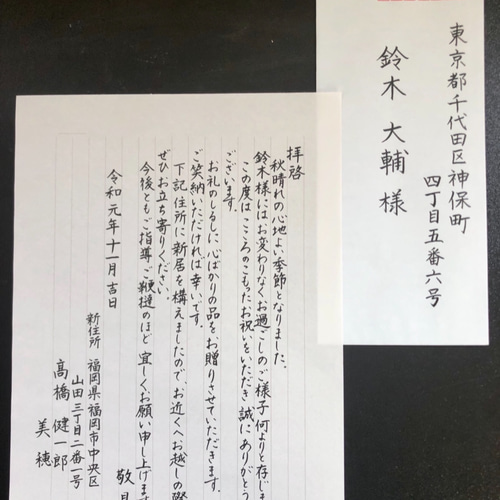 東京都千代田区神保町
四丁目五番六号
鈴木 大輔 様
拝啓
秋晴れの心地よい季節となりました。
鈴木様にはお変わりなくお過ごしのご様子何よりと存じま
この度は、こころのこもったお祝いをいただき誠にありがとう
ございます。
お礼のしるしに心ばかりの品をお贈りさせていただきます。
ご笑納いただければ幸いです。
下記住所に新居を構えましたので、お近くへお越しの際
ぜひお立ち寄りください。
今後ともご指導ご鞭撻のほど宜しくお願い申し上げま
敬具
令和元年十一月吉日
新住所 福岡県福岡市中央区
山田三丁目二番一号
髙橋 健一郎
美穂